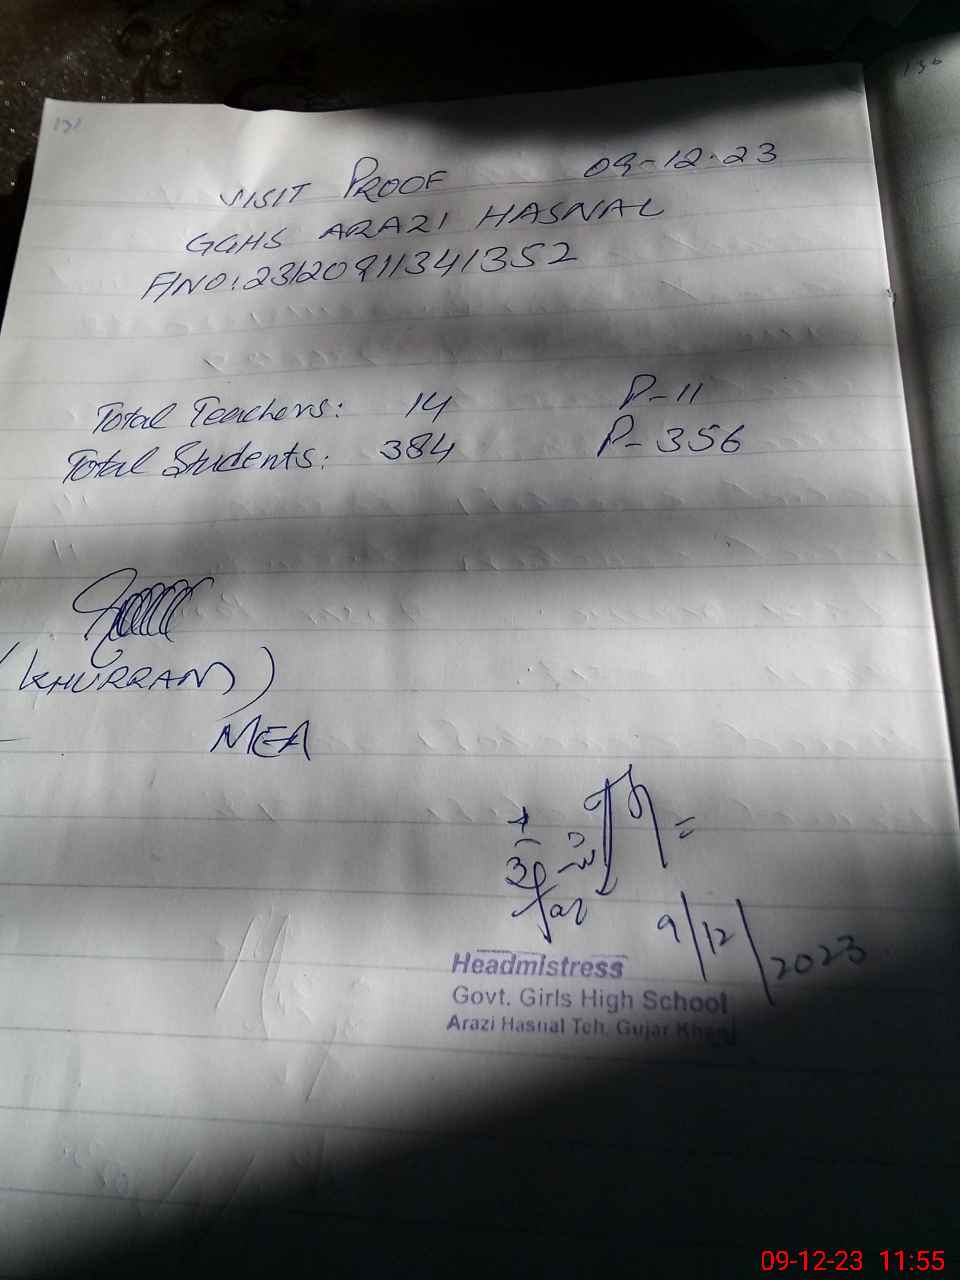 131
136
VISIT PROOF 09-12-23
GGHS ARAZI HASNAL
F/NO:23120911341352
Total Teachers: 14 P-11
Total Students: 384 P-356
(KHURRAM)
MEA
9/12/2023
Headmistress
Govt. Girls High School
Arazi Hasnal Teh. Gujar Khan
09-12-23 11:55